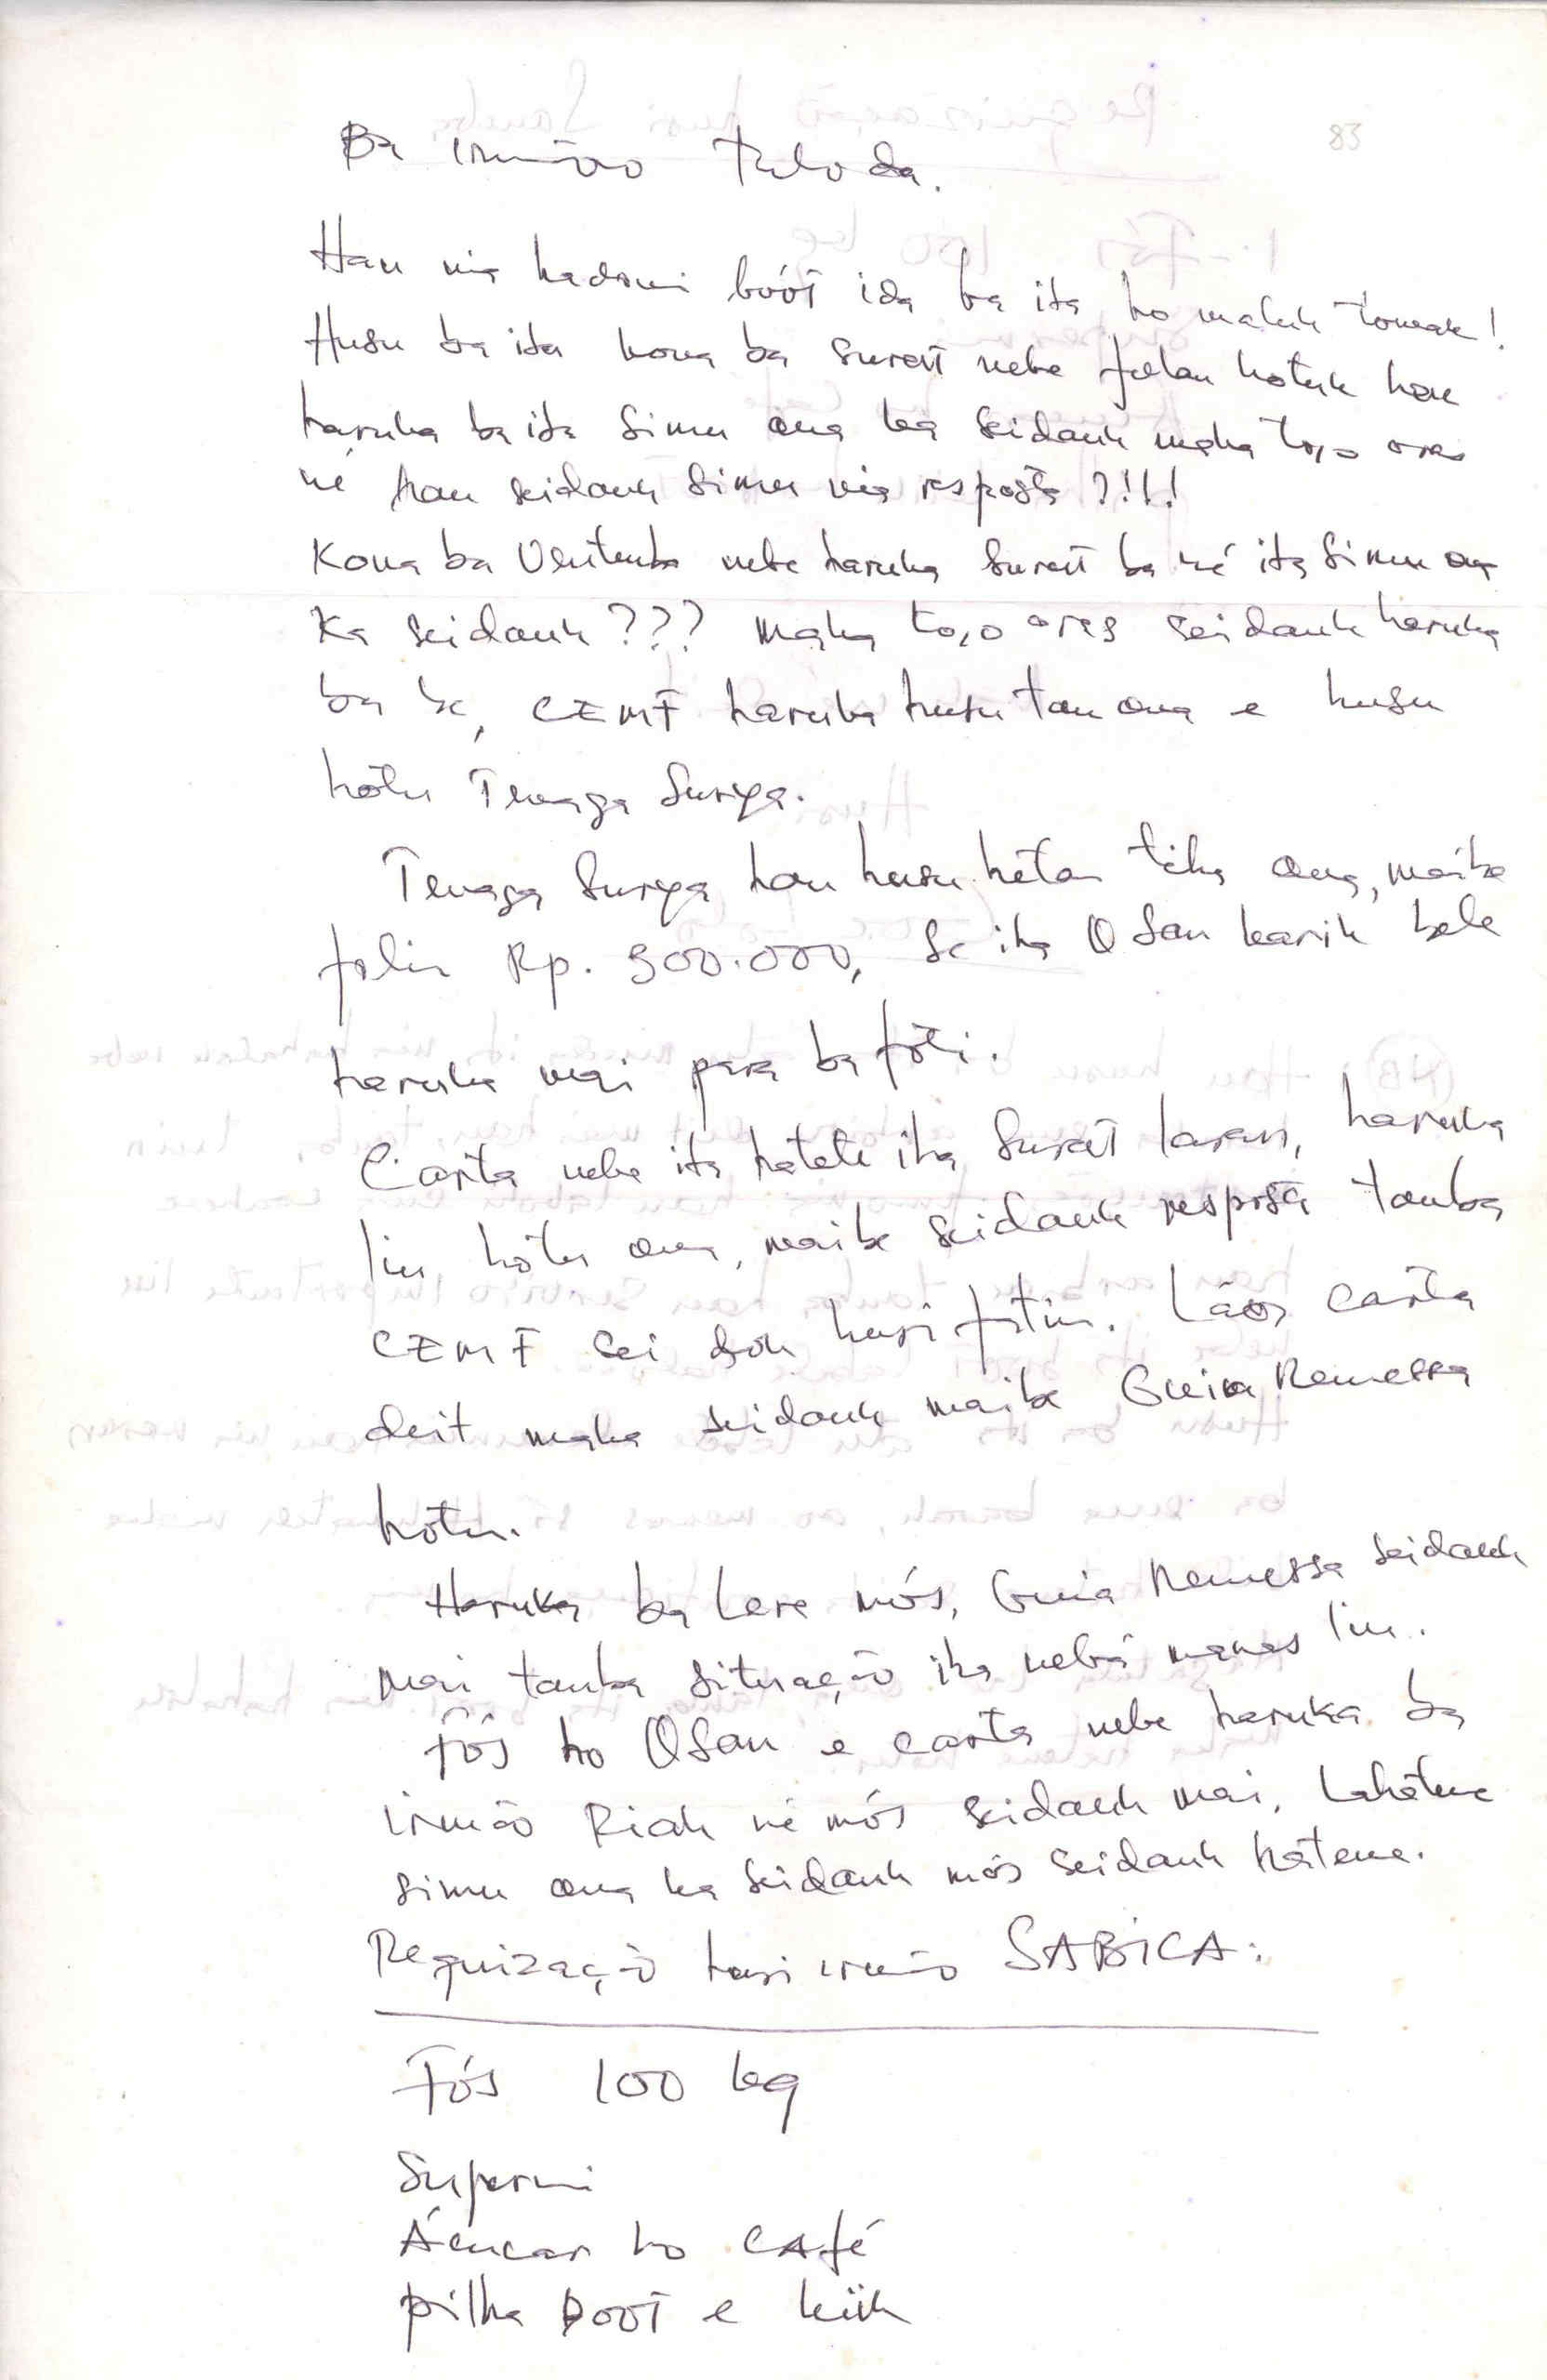 Ba irmão Tulo da.
83
Hau nia hadomi bóót ida ba ita ho maluk tomak!
Husu ba ita kona ba surat nebe fulan kotuk hau
haruka ba ita simu ona ka seidauk maka to,o oras
né hau seidauk simu nia resposta ?!!!
Kona ba nebe haruka surat ba né ita simu ona
Ka seidauk??? maka to,o oras seidauk haruka
ba be, CEMF haruka husu tan ona e husu
hotu Tenaga Surya.
Tenaga Surya hau husu hetan tiha ona, maibe
folin Rp. 900.000, Se iha Osan karik bele
haruka mai para ba foti.
Carta nebe ita hatete iha Surat laran, haruka
liu hotu ona, maibe seidauk resposta tanba
CEMF sei dok husi fatin. Láos carta
deit maka seidauk maibe Guia Remessa
hotu.
Haruka ba Lere mós, Guia Remessa seidauk
mai tanba situação iha nebá manas liu.
Fós ho Osan e carta nebe haruka ba
irmão Riak né mós seidauk mai, Lahatene
simu ona ka seidauk mós seidauk hatene.
Requização husi irmão SABICA:
Fós 100 kg
Supermi
Ácucar ho café
pilha boot e kiik